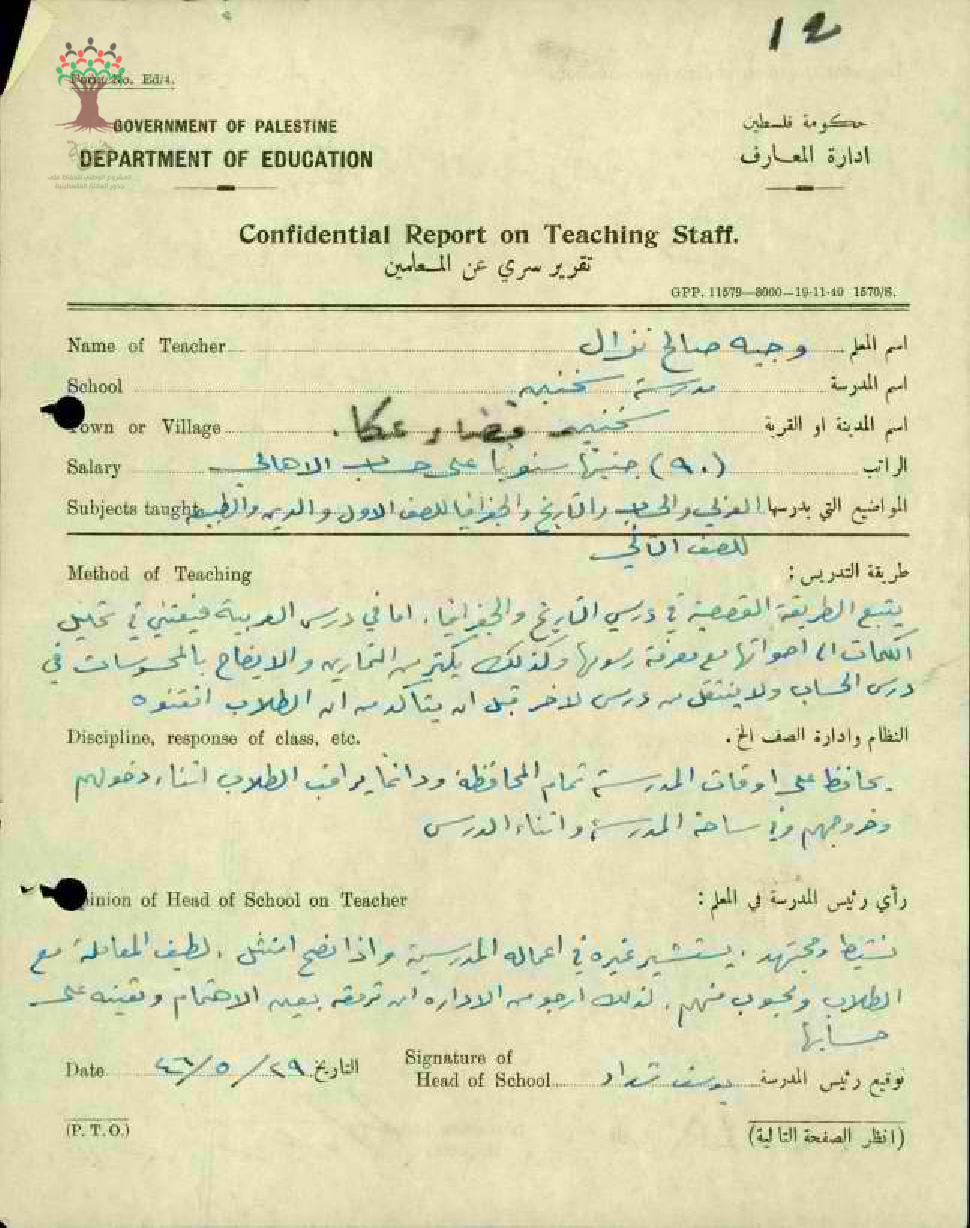 12
Form No. Ed/4.
GOVERNMENT OF PALESTINE
حكومة فلسطين
DEPARTMENT OF EDUCATION
ادارة المعارف
Confidential Report on Teaching Staff.
تقرير سري عن المعلمين
GPP. 11579—3000—19-11-40 1570/S.
Name of Teacher وجيه صالح نزال اسم المعلم
School مدرسة سخنين اسم المدرسة
Town or Village سخنين قضاء عكا. اسم المدينة او القرية
Salary (٩٠) جنيهاً سنوياً على حساب الاهالي الراتب
Subjects taught العربي والحساب والتاريخ والجغرافيا للصف الاول والدين والطبيعة المواضيع التي يدرسها
للصف الثاني
Method of Teaching طريقة التدريس :
يتبع الطريقة القصصية في درسي التاريخ والجغرافيا. اما في درس العربية فيعتني في تحليل
الكلمات الى اصواتها مع معرفة رسومها وكذلك يكثر من التمارين والايضاح بالمحسوسات في
درس الحساب ولا ينتقل من درس لاخر قبل ان يتأكد من ان الطلاب اتقنوه
Discipline, response of class, etc. النظام وادارة الصف الخ .
يحافظ على اوقات المدرسة تمام المحافظة ودائماً يراقب الطلاب اثناء دخولهم
وخروجهم وفي ساحة المدرسة واثناء الدرس
Opinion of Head of School on Teacher رأي رئيس المدرسة في المعلم :
نشيط ومجتهد . يستشير غيره في اعماله المدرسية واذا نصح امتثل . لطيف المعاملة مع
الطلاب ومحبوب منهم . لذلك ارجو من الادارة ان ترمقه بعين الاهتمام وتعينه على
حسابها
Date ٢٩/٥/٤٦ التاريخ Signature of Head of School يوسف شداد توقيع رئيس المدرسة
(P. T. O.)
(انظر الصفحة التالية)